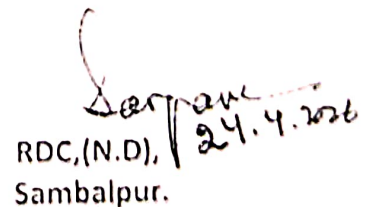 24.4.2026
RDC,(N.D),
Sambalpur.